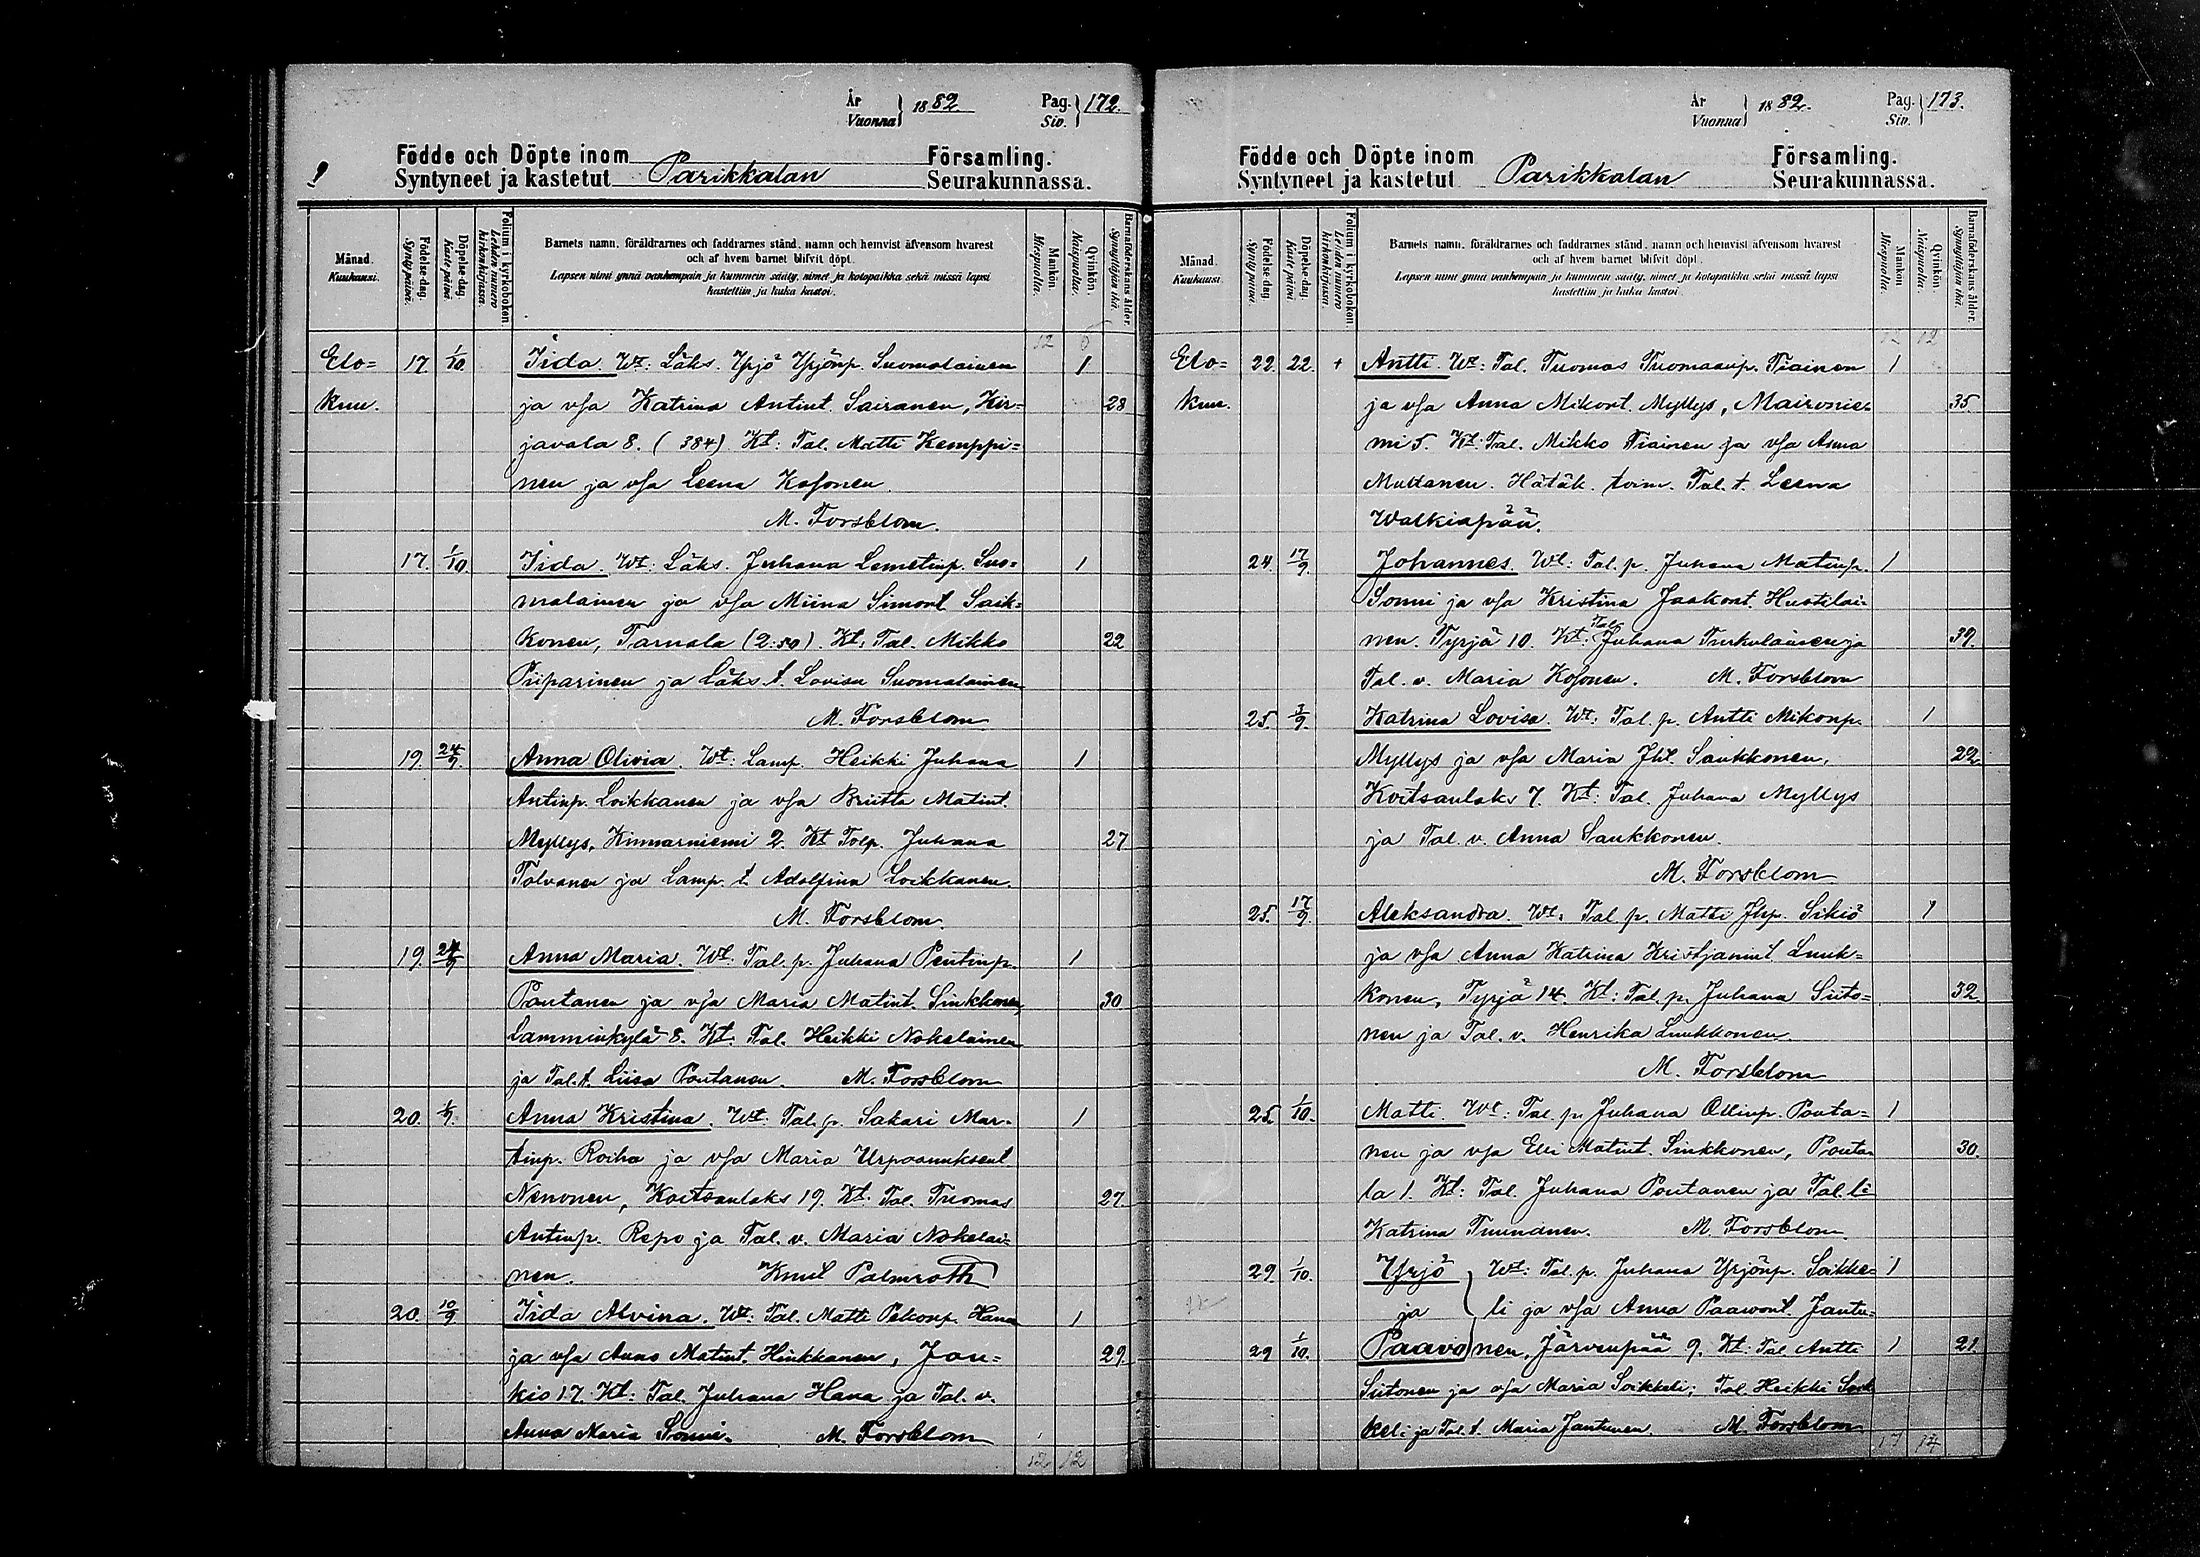 År
Vuonna } 1882.
Pag.
Siv. } 172.
Födde och Döpte inom
Syntyneet ja kastetut Parikkalan Församling.
Seurakunnassa.
Månad.
Kuukausi.
Födelse-dag.
Synty-päivä.
Döpelse-dag.
Kaste-päivä.
Folium i kyrkoboken.
Lehden numero kirkonkirjassa.
Barnets namn, föräldrarnes och faddrarnes stånd, namn och hemvist äfvensom hvarest
och af hvem barnet blifvit döpt.
Lapsen nimi ynnä vanhempain ja kummein sääty, nimet ja kotopaikka sekä missä lapsi
kastettiin ja kuka kastoi.
Mankön.
Miespuolia.
Qvinkön.
Naispuolia.
Barnaföderskans ålder.
Synnyttäjän ikä.
Elo= 17 1/10. Iida. Wt: Läks. Yrjö Yrjönp. Suomalainen 1
kuu. ja vsa Katrina Antint. Sairanen, Kir= 28
javala 8. (384) Kt: Tal. Matti Kemppi=
nen ja vsa Leena Kosonen.
M. Forsblom.
17. 1/10. Iida. Wt: Läks. Juhana Lemetinp. Suo= 1
malainen ja vsa Miina Simont. Saik=
konen, Tarnala (2:50). Kt: Tal. Mikko 22
Piiparinen ja Läks. t. Lovisa Suomalainen
M. Forsblom
19. 24/9. Anna Olivia. Wt: Lamp. Heikki Juhana 1
Antinp. Loikkanen ja vsa Briitta Matint.
Myllys, Kinnarniemi 2. Kt Tolp. Juhana 27
Tolvanen ja Lamp. t. Adolfina Loikkanen.
M. Forsblom.
19. 24/9 Anna Maria. Wt. Tal. p. Juhana Pentinp. 1
Poutanen ja vsa Maria Matint. Sinkkonen, 30
Lamminkylä 8. Kt: Tal. Heikki Nokelainen
ja Tal. t. Liisa Poutanen. M. Forsblom
20. /9. Anna Kristina. Wt: Tal. p. Sakari Mar= 1
tinp. Roiha ja vsa Maria Urpaanuksent.
Nenonen, Koitsanlaks 19. Kt. Tal. Tuomas 27.
Antinp. Repo ja Tal. v. Maria Nokelai=
nen. Knut Palmroth
20. 10/9 Iida Alvina. Wt: Tal. Matti Pekonp. Hana 1
ja vsa Anna Matint. Hinkkanen, Jou= 29.
kio 17. Kt: Tal. Juhana Hana ja Tal. v.
Anna Maria Sonni. M. Forsblom
12 12
År
Vuonna } 1882.
Pag.
Siv. } 173.
Födde och Döpte inom
Syntyneet ja kastetut Parikkalan Församling.
Seurakunnassa.
Månad.
Kuukausi.
Födelse-dag.
Synty-päivä.
Döpelse-dag.
Kaste-päivä.
Folium i kyrkoboken.
Lehden numero kirkonkirjassa.
Barnets namn, föräldrarnes och faddrarnes stånd, namn och hemvist äfvensom hvarest
och af hvem barnet blifvit döpt.
Lapsen nimi ynnä vanhempain ja kummein sääty, nimet ja kotopaikka sekä missä lapsi
kastettiin ja kuka kastoi.
Mankön.
Miespuolia.
Qvinkön.
Naispuolia.
Barnaföderskans ålder.
Synnyttäjän ikä.
12 12
Elo= 22. 22. + Antti. Wt: Tal. Tuomas Tuomaanp. Tiainen 1
kuu. ja vsa Anna Mikont. Myllys, Maironie= 35.
mi 5. Kt: Tal. Mikko Tiainen ja vsa Anna
Muttanen. Hätäk. toim. Tal. t. Leena
Walkiapää.
24. 17/9. Johannes. Wt: Tal. p. Juhana Matinp. 1
Sonni ja vsa Kristina Jaakont. Huotilai=
nen. Tyrjä 10. Kt: Tal. Juhana Turkulainen ja 39.
Tal. v. Maria Kosonen. M. Forsblom
25. 3/9. Katrina Lovisa. Wt: Tal. p. Antti Mikonp. 1
Myllys ja vsa Maria Jht. Saukkonen, 22
Koitsanlaks 7. Kt: Tal. Juhana Myllys
ja Tal. v. Anna Saukkonen.
M. Forsblom
25. 17/9. Aleksandra. Wt: Tal. p. Matti Jhp. Sikiö 1
ja vsa Anna Katrina Kristjanint. Luuk=
konen, Tyrjä 14. Kt: Tal. p. Juhana Siito= 32
nen ja Tal. v. Henrika Luukkonen.
M. Forsblom
25. 1/10. Matti. Wt: Tal. p. Juhana Ollinp. Pouta= 1
nen ja vsa Elli Matint. Sinkkonen, Pouta= 30.
la 1. Kt: Tal. Juhana Poutanen ja Tal. l:
Katrina Tuunanen. M. Forsblom
29. 1/10. Yrjö } Wt: Tal. p. Juhana Yrjönp. Soikke= 1
ja } li ja vsa Anna Paavont. Jantu=
29 1/10. Paavo } nen, Järvenpää 9. Kt: Tal Antti 1 21.
Siitonen ja vsa Maria Soikkeli; Tal. Heikki Soik
keli ja Tal. t. Maria Jantunen. M. Forsblom
17 14